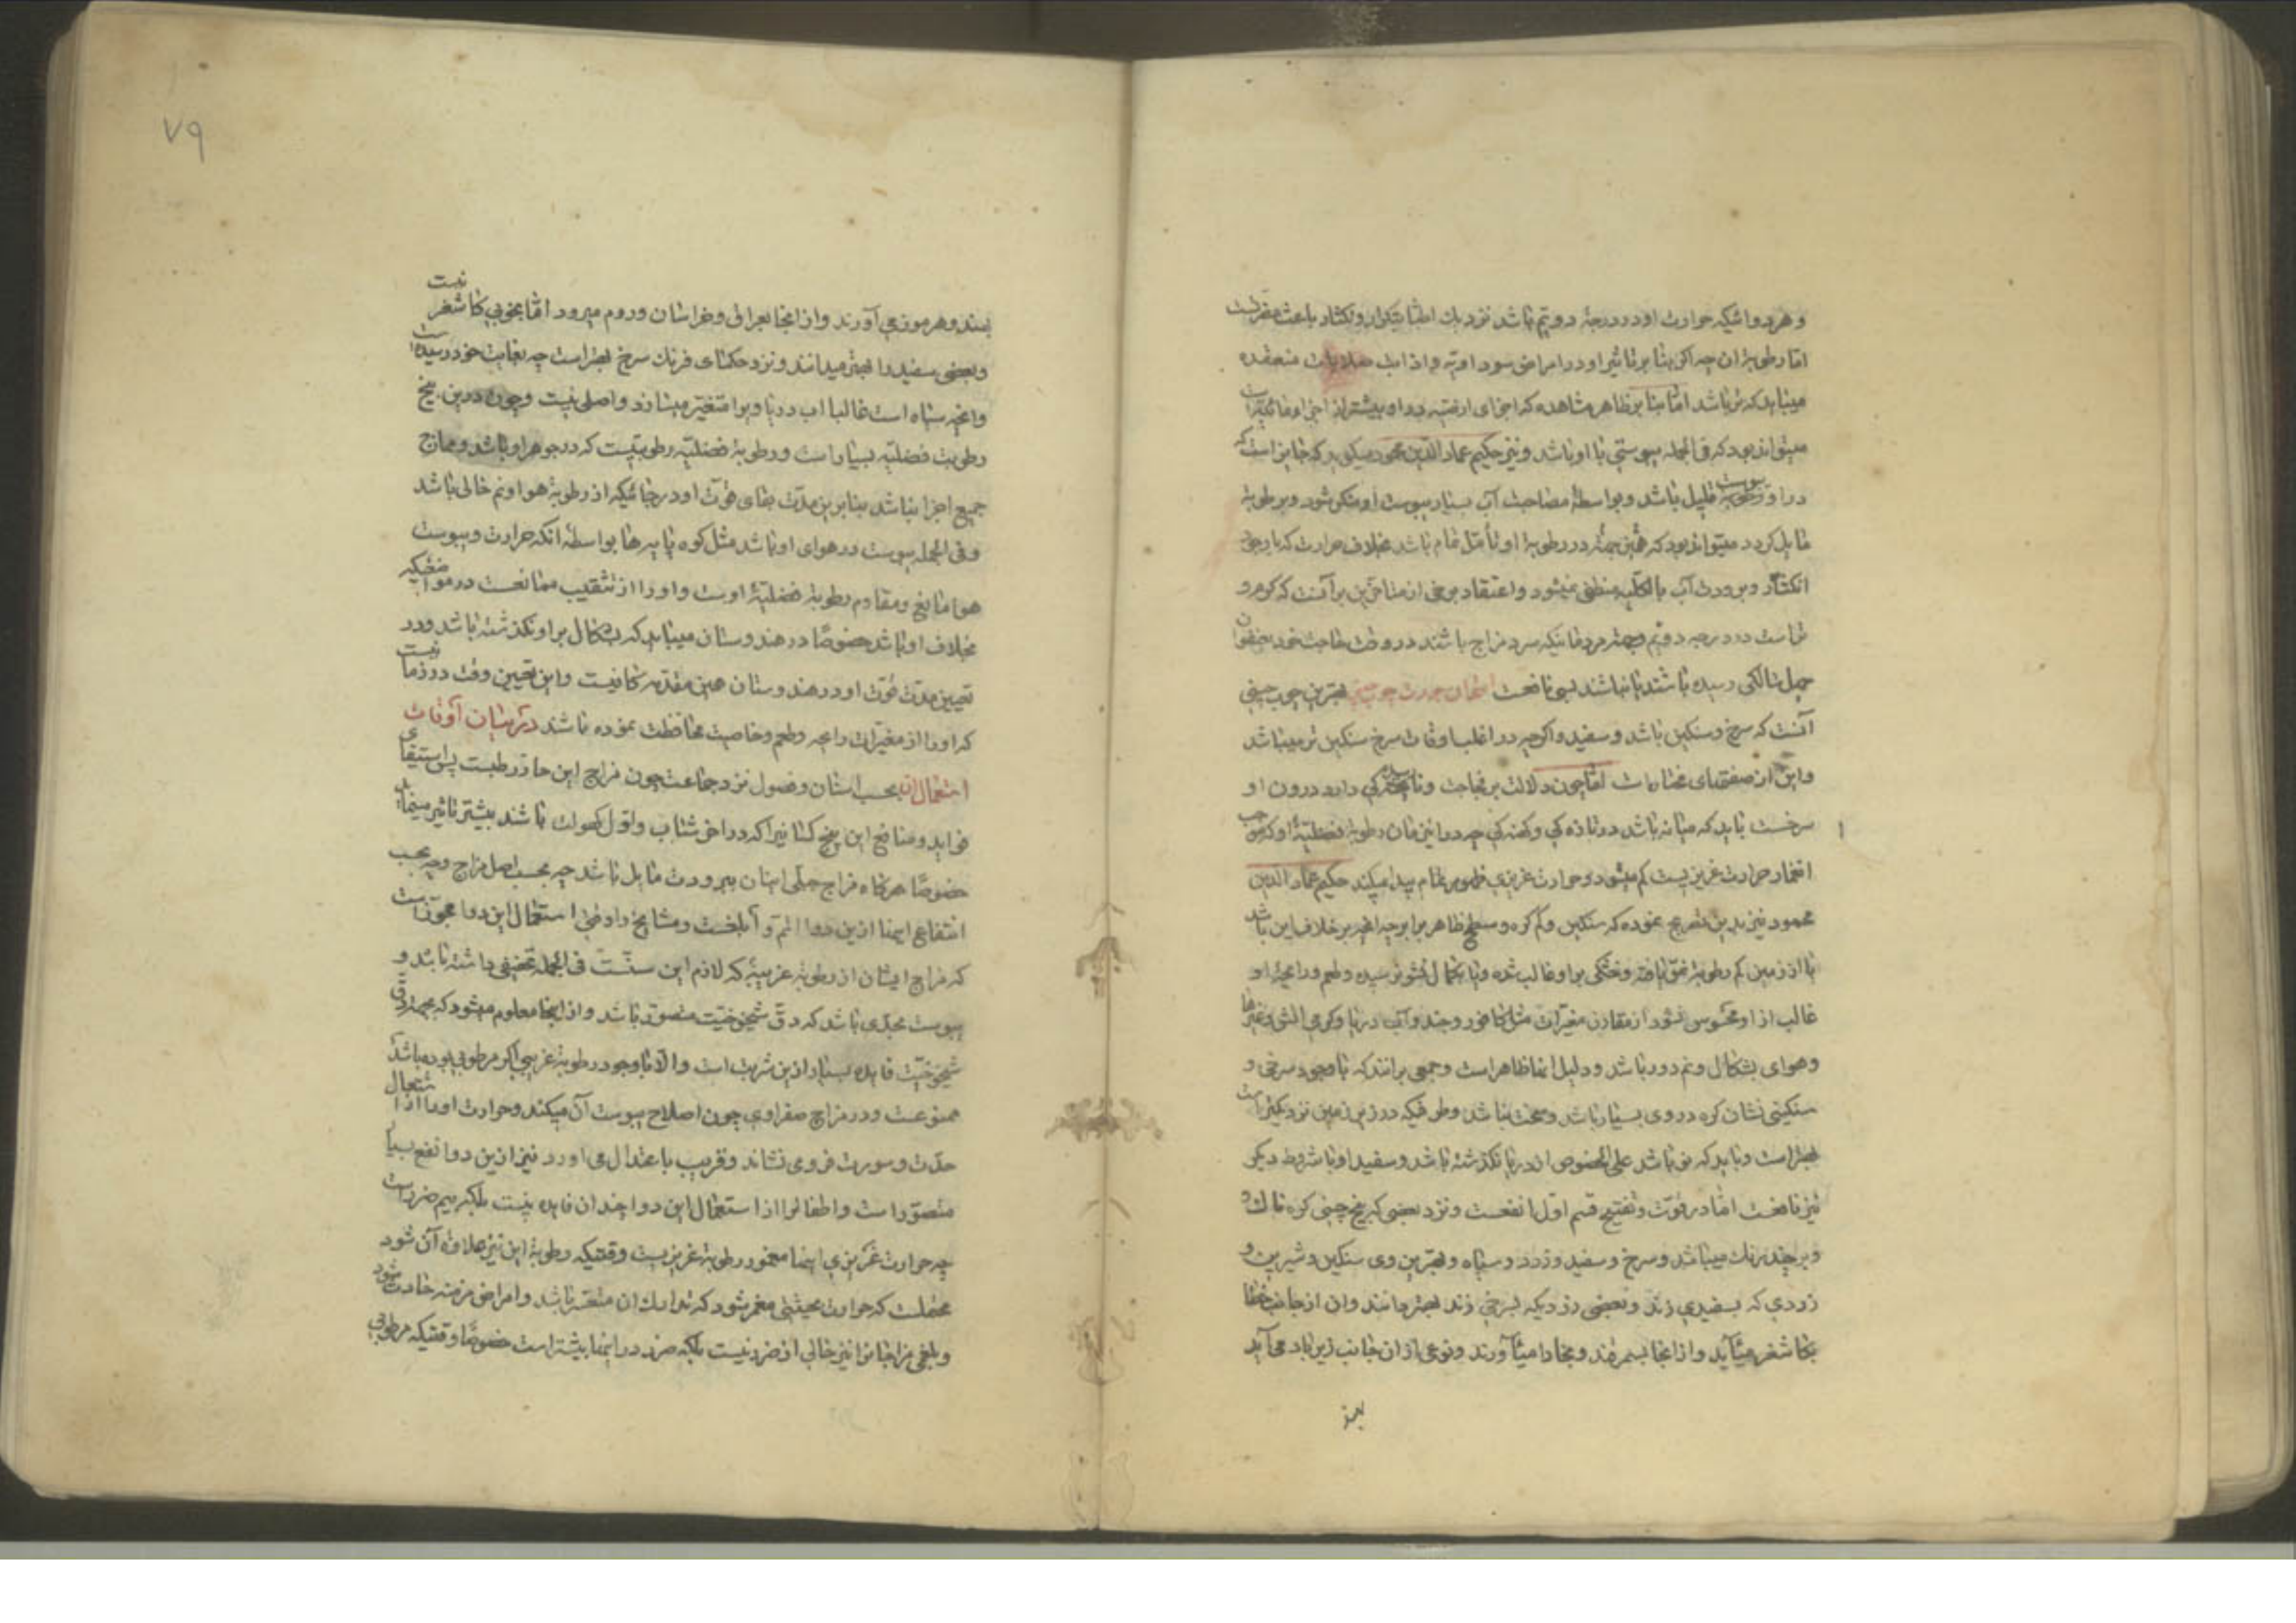 و هر دوائیکه حرارت او در درجهٔ دویم باشد نزدیک اطبا بتکرار و بکثار باعث مضرتست
اما رطوبة آن چه اگر بنا بر تاثیر او در امراض سوداویه و اذابت صلابات منعقده
مینماید که تر باشد اما بنا بر ظاهر مشاهده که اجزای ارضیه در او بیشتر از اجزاء مائیه است
میتواند بود که فی الجمله یبوستی با او باشد و نیز حکیم عماد الدین محمود میگوید که جایز است که
در او یبوست قلیل باشد و بواسطهٔ مصاحبت آب بسیار یبوست او منکسر شود و برطوبة
مایل گردد میتواند بود که همین جهة در رطوبة او تأمل تمام باشد بخلاف حرارت که با وجود
انکسار و برودت آب بالکلیه منطفی نمیشود و اعتقاد برخی از متاخرین بر آنست که گرم و
تر است در درجه دویم و جهة مردمانیکه سرد مزاج باشند در وقت حاجت خود
چهل سالگی رسیده باشند یا نباشند بسی نافعست امتحان جودت چوب چینی بهترین چوب چینی
آنست که سرخ و سنگین باشد و سفید و اگر چه در اغلب اوقات سرخ سنگین تر میباشد
و این از صفتهای مختار است اما چون دلالت بر فجاجت و دارد درون او
سرخست باید که میانه باشد در تازه کی و کهنه کی چه در این زمان رطوبة فضلیهٔ او که موجب
انغمار حرارت غریزیست کم میشود و حرارت غریزی ظهور تمام پیدا میکند حکیم عماد الدین
محمود نیز بدین تصریح نموده که سنگین و کم گره و سطح ظاهر برابر چه آنچه بر خلاف این باشد
یا از زمین کم رطوبة نمو یافته و خشکی بر او غالب شده و یا بکمال نشو نرسیده و طعم و رایحهٔ او
غالب از او محسوس نشود از مقارن مغیرات مثل کافور و جند و آب دریا و گرمی و غیرها
و هوای بشکال و نم دور باشد و دلیل اینها ظاهر است و جمعی برانند که با وجود سرخی و
سنگینی نشان گره در وی بسیار باشد و سخت نباشد و طرفیکه در زیر زمین نزدیکتر است
بهتر است و باید که نو باشد علی الخصوص از دریا نگذشته باشد و سفید او با شروط دیگر
نیز نافعست اما در قوت و تفتیح قسم اول انفعست و نزد بعضی که بیخ چینی گره ناک
و بر چند رنگ میباشد و سرخ و سفید و زرد و سیاه و بهترین وی سنگین و شیرین و
زردی که بسفیدی زند و بعضی زردیکه بسرخی زند بهتر دانند و آن از جانب خطا
بکاشغر میآید و از انجا بسمرقند و بخارا میآورند و نوعی از ان جانب زیرباد می آید
بهند
۷۹
بهند و هرموز می آورند و از انجا بعراق و خراسان و روم میرود اما بخوبی کاشغر نیست
و بعضی سفید را بهتر میدانند و نزد حکمای فرنک سرخ بهتر است چه بغایت خود رسیده است
و آنچه سیاه است غالبا اب دریا او را متغیر میسازد و اصلی نیست و چون درین بیخ
رطوبت فضلیه بسیار است و رطوبة فضلیه رطوبتیست که در جوهر او باشد و ممازج
جمیع اجزا نباشد بنابرین مدت بقای قوت او در جائیکه از رطوبة هوا و نم خالی باشد
و فی الجمله یبوست در هوای او باشد مثل کوه پایه ها بواسطه آنکه حرارت و یبوست
هوا مانع و مقاوم رطوبة فضلیهٔ اوست و او را از تثقیب ممانعت در مواضعیکه
بخلاف او باشد خصوصا در هندوستان میباید که بشکال بر او نگذشته باشد و در
تعیین مدت قوت او در هندوستان همین مقدمه کافیست و این تعیین وقت در زمانیست
که او را از مغیرات رایحه و طعم و خاصیت محافظت نموده باشند در بیان اوقات
استعمال آن بحسب اسنان و فصول نزد جماعت چون مزاج این حار رطبست پس استیفای
فواید و منافع این بیخ کسانیرا که در اخر شباب و اول کهولت باشند بیشتر تاثیر مینماید
خصوصا هرگاه مزاج جبلی ایشان ببرودت مایل باشد چه بحسب اصل مزاج و چه بحسب
انتفاع اینها ازین دوا اتم و ابلغست و مشایخ را وقتی استعمال این دوا مجوز است
که مزاج ایشان از رطوبة غریبهٔ که لازم این سنست فی الجمله تخفیفی داشته باشد و
یبوست بحدی باشد که دق شیخوخیت متصور باشد و از اینجا معلوم میشود که بجهة دق
شیخوخیت فایده بسیار ازین شربت است و الا با وجود رطوبة غریبی اگر مرطوبی بوده باشد
ممنوعست و در مزاج صفراوی چون اصلاح یبوست آن میکند و حرارت او را از اشتعال
حدت و سورت فرو می نشاند و قریب باعتدال می اورد نیز ازین دوا نفع بسیار
متصور است و اطفال را از استعمال این دوا چندان فایده نیست بلکه بیم ضرر است
چه حرارت غریزی اینها مغمور رطوبة غریزیست وقتیکه رطوبة این نیز علاوهٔ آن شود
محتملست که حرارت بحیثیتی منغمر شود که تدارک ان متعسر باشد و امراض مزمنه حادث شود
و بلغمی مزاجانرا نیز خالی از ضرر نیست بلکه ضرر در اینها بیشتر است خصوصا وقتیکه مرطوبی